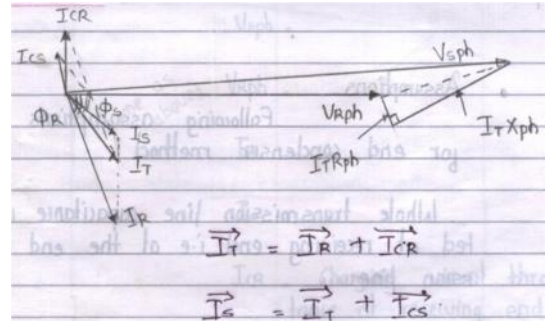 I_CR
I_CS
V_Sph
Φ_R
Φ_S
I_S
I_T
I_R
V_Rph
I_T R_ph
I_T X_ph
I_T = I_R + I_CR
I_S = I_T + I_CS